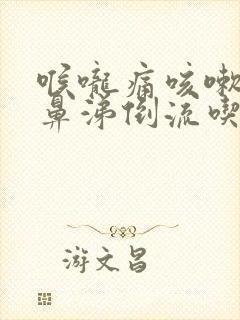 喉嚨痛咳嗽
鼻涕倒流喫
游文昌